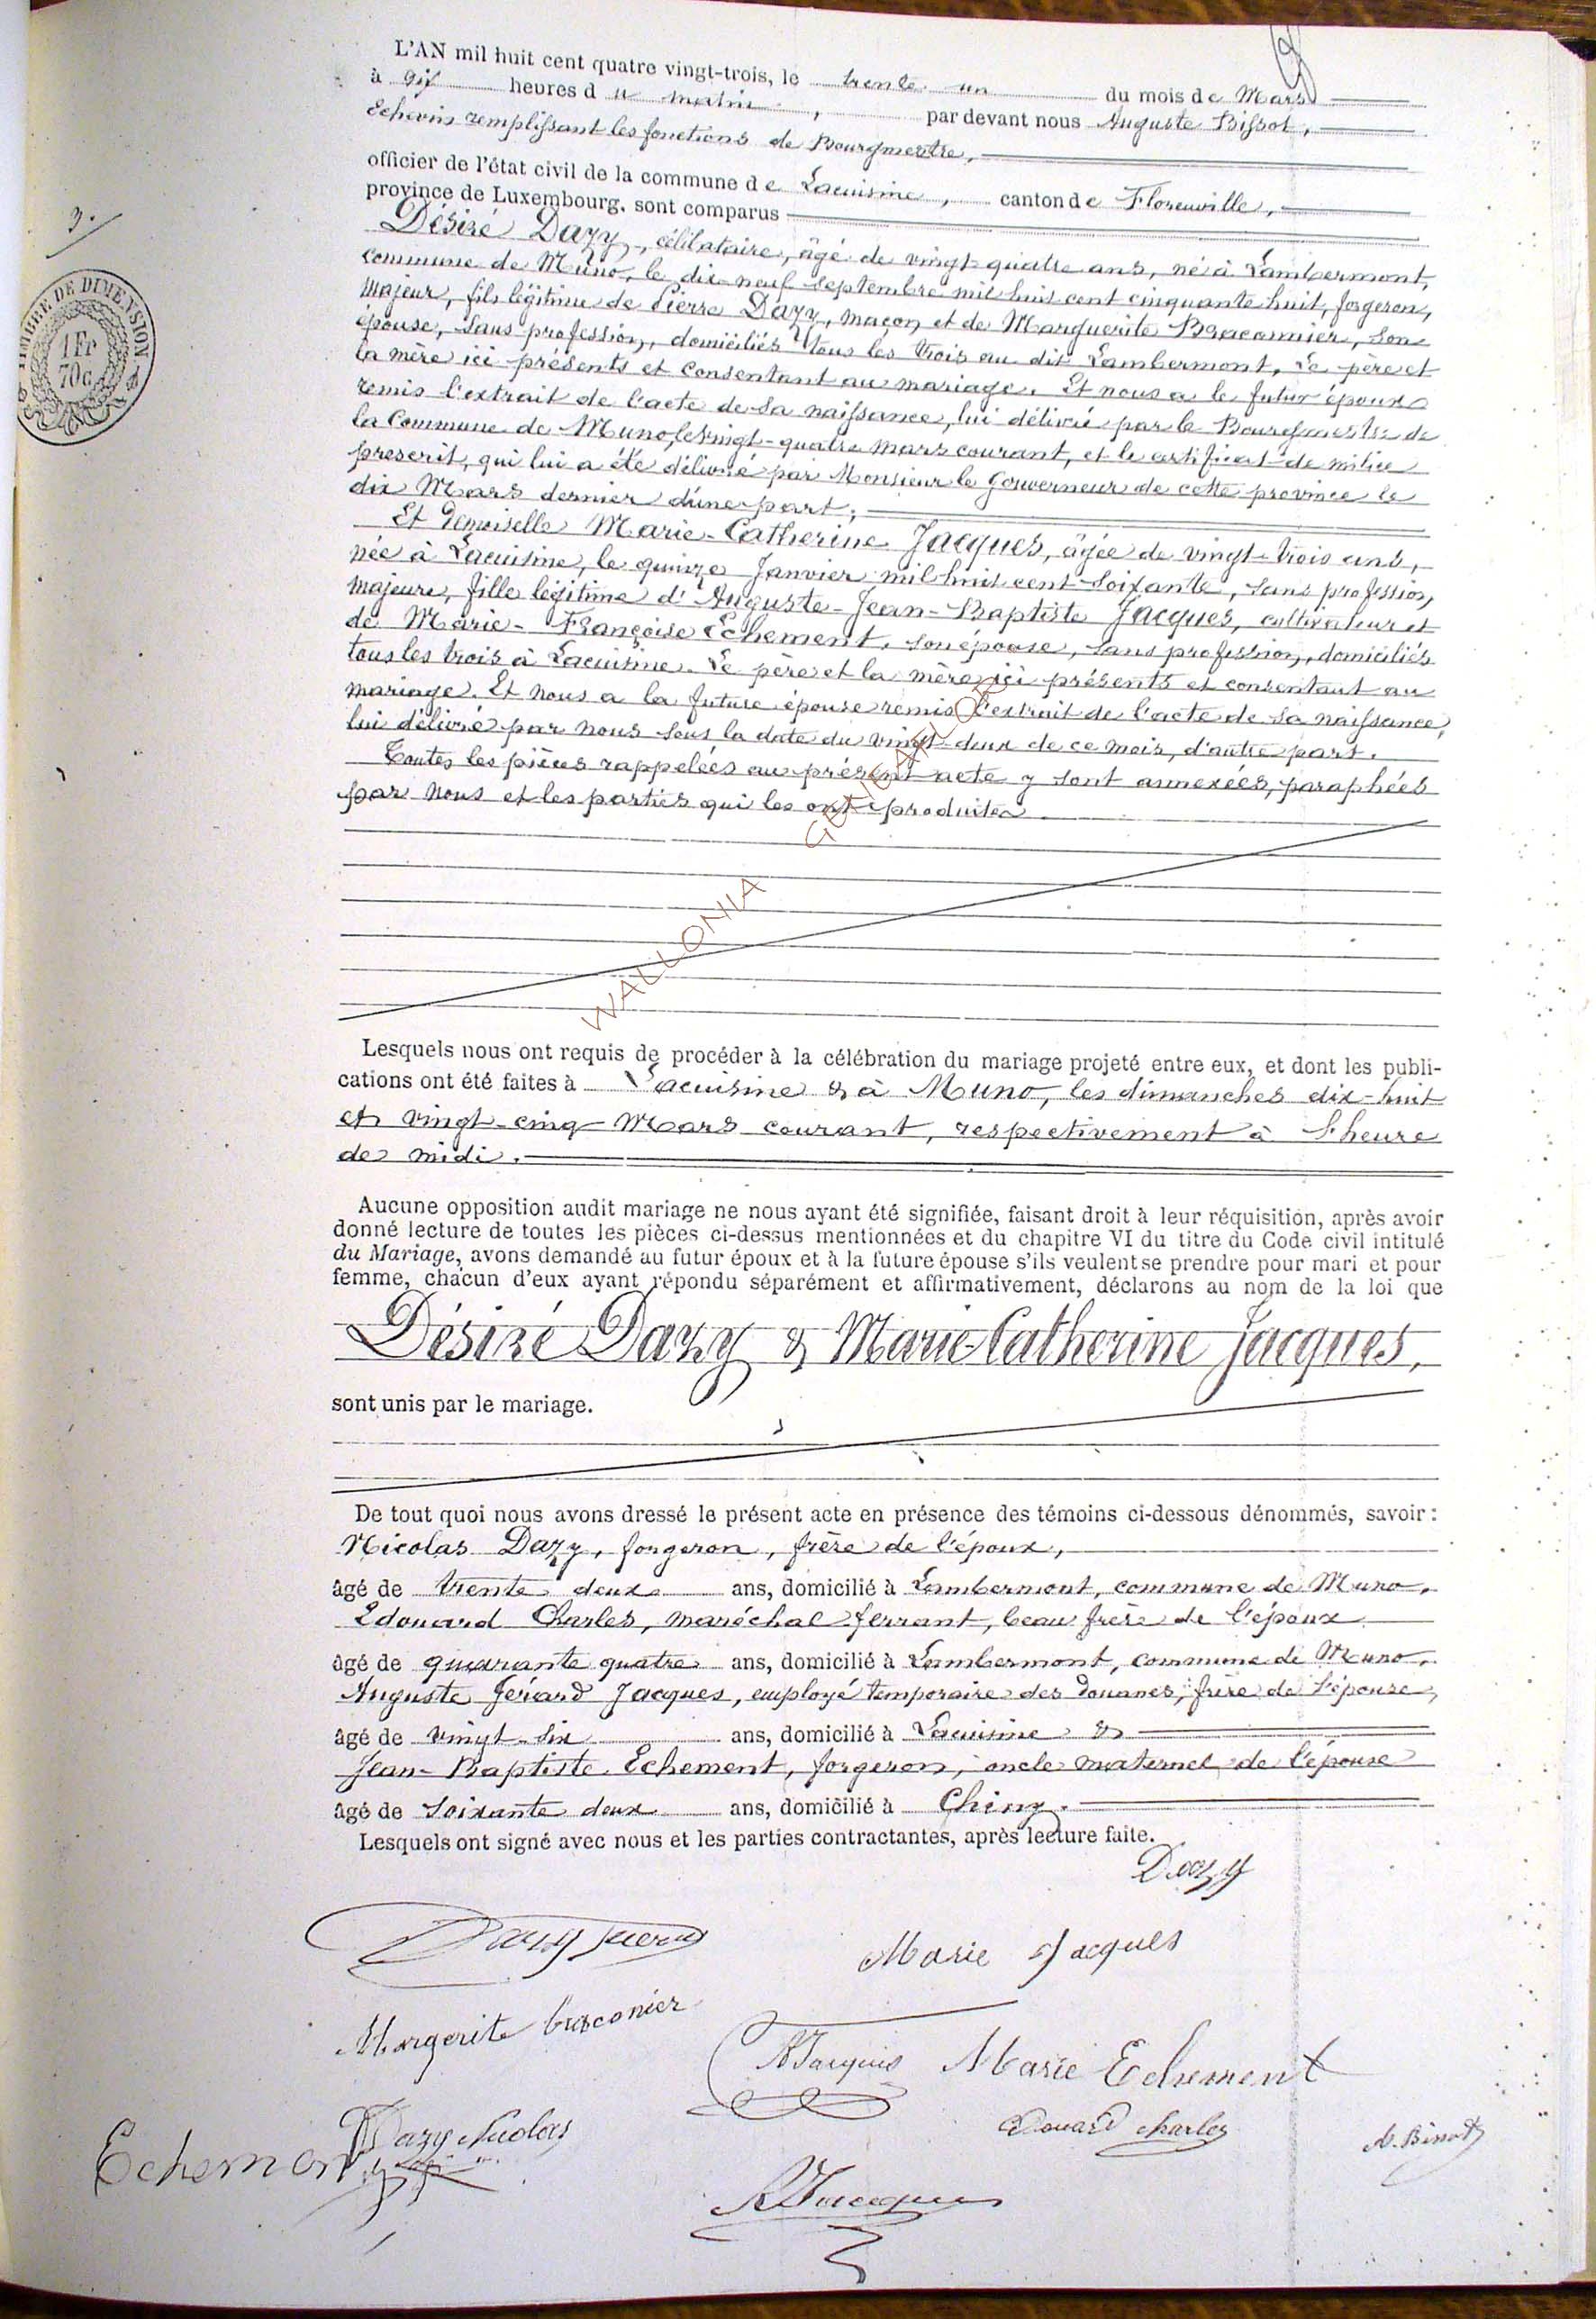 L'AN mil huit cent quatre vingt-trois, le trente un du mois de Mars
à dix heures du matin, par devant nous Auguste Bissot,
Echevin remplissant les fonctions de Bourgmestre,
officier de l'état civil de la commune de Lacuisine, canton de Florenville,
province de Luxembourg, sont comparus
Désiré Dazy, célibataire, âgé de vingt-quatre ans, né à Lambermont,
commune de Muno, le dix-neuf septembre mil huit cent cinquante huit, forgeron,
majeur, fils légitime de Pierre Dazy, maçon, et de Marguerite Braconnier, son
épouse, sans profession, domiciliés tous les trois au dit Lambermont, Le père et
la mère ici présents et consentant au mariage. Et nous a le futur époux
remis l'extrait de l'acte de sa naissance, lui délivré par le Bourgmestre de
la Commune de Muno, le vingt-quatre mars courant, et le certificat de milice
prescrit, qui lui a été délivré par Monsieur le Gouverneur de cette province le
dix Mars dernier d'une part;
Et Demoiselle Marie-Catherine Jacques, âgée de vingt-trois ans,
née à Lacuisine, le quinze Janvier mil huit cent soixante, sans profession,
majeure, fille légitime d'Auguste-Jean-Baptiste Jacques, cultivateur et
de Marie-Françoise Echement, son épouse, sans profession, domiciliés
tous les trois à Lacuisine. Le père et la mère ici présents et consentant au
mariage. Et nous a la future épouse remis l'extrait de l'acte de sa naissance,
lui délivré par nous sous la date du vingt-deux de ce mois, d'autre part.
Toutes les pièces rappelées au présent acte y sont annexées, paraphées
par nous et les parties qui les ont produites
WALLONIA
Lesquels nous ont requis de procéder à la célébration du mariage projeté entre eux, et dont les publi-
cations ont été faites à Lacuisine & à Muno, les dimanches dix-huit
et vingt-cinq Mars courant, respectivement à l'heure
de midi.
Aucune opposition audit mariage ne nous ayant été signifiée, faisant droit à leur réquisition, après avoir
donné lecture de toutes les pièces ci-dessus mentionnées et du chapitre VI du titre du Code civil intitulé
du Mariage, avons demandé au futur époux et à la future épouse s'ils veulent se prendre pour mari et pour
femme, chacun d'eux ayant répondu séparément et affirmativement, déclarons au nom de la loi que
Désiré Dazy & Marie-Catherine Jacques,
sont unis par le mariage.
De tout quoi nous avons dressé le présent acte en présence des témoins ci-dessous dénommés, savoir :
Nicolas Dazy, forgeron, frère de l'époux,
âgé de trente deux ans, domicilié à Lambermont, commune de Muno.
Edouard Charles, maréchal-ferrant, beau frère de l'époux
âgé de quarante quatre ans, domicilié à Lambermont, commune de Muno.
Auguste Gérard Jacques, employé temporaire des Douanes, frère de l'épouse,
âgé de vingt-six ans, domicilié à Lacuisine &
Jean-Baptiste Echement, forgeron, oncle maternel de l'épouse
âgé de soixante deux ans, domicilié à Chiny.
Lesquels ont signé avec nous et les parties contractantes, après lecture faite.
Dazy
Dazy pierre
Marie Jacques
Margerite braconier
AJacques Marie Echement
Dazy Nicolas
Edouard Charles
A. Bissot
Echement
AJacques
3.
TIMBRE DE DIMENSION
1 Fr
70c